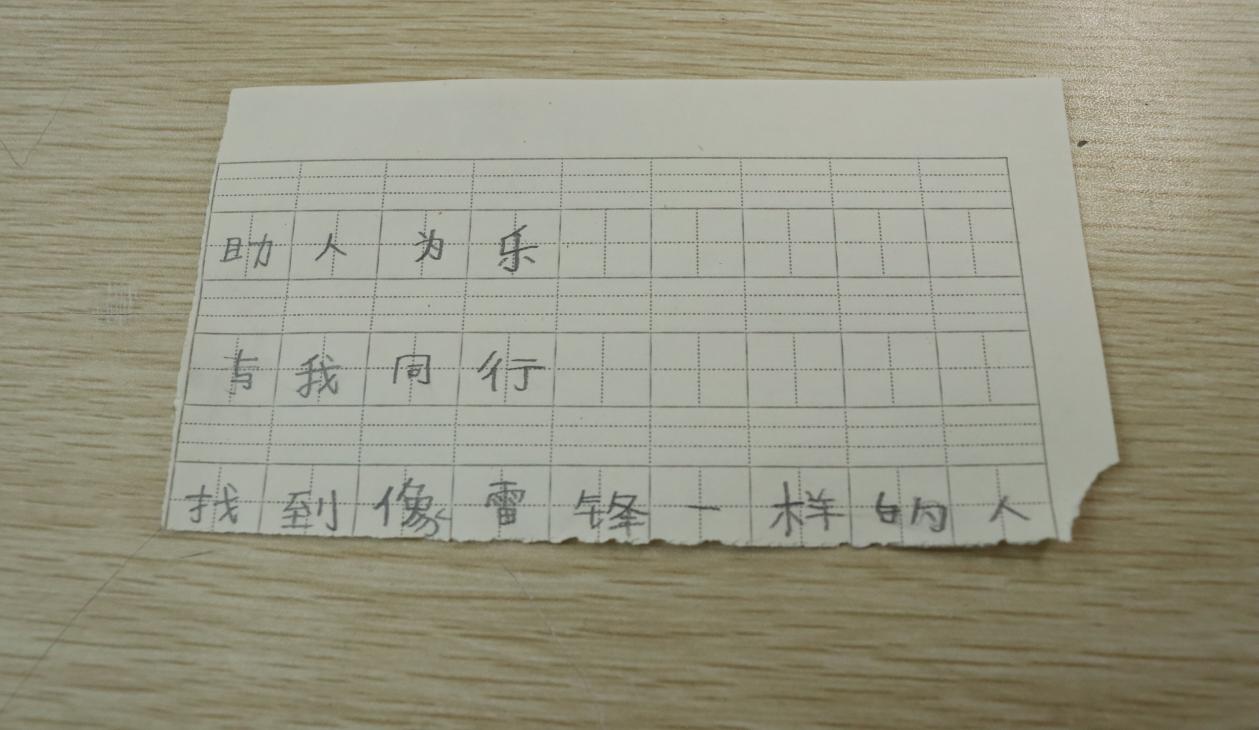 助人为乐
与我同行
找到像雷锋一样的人